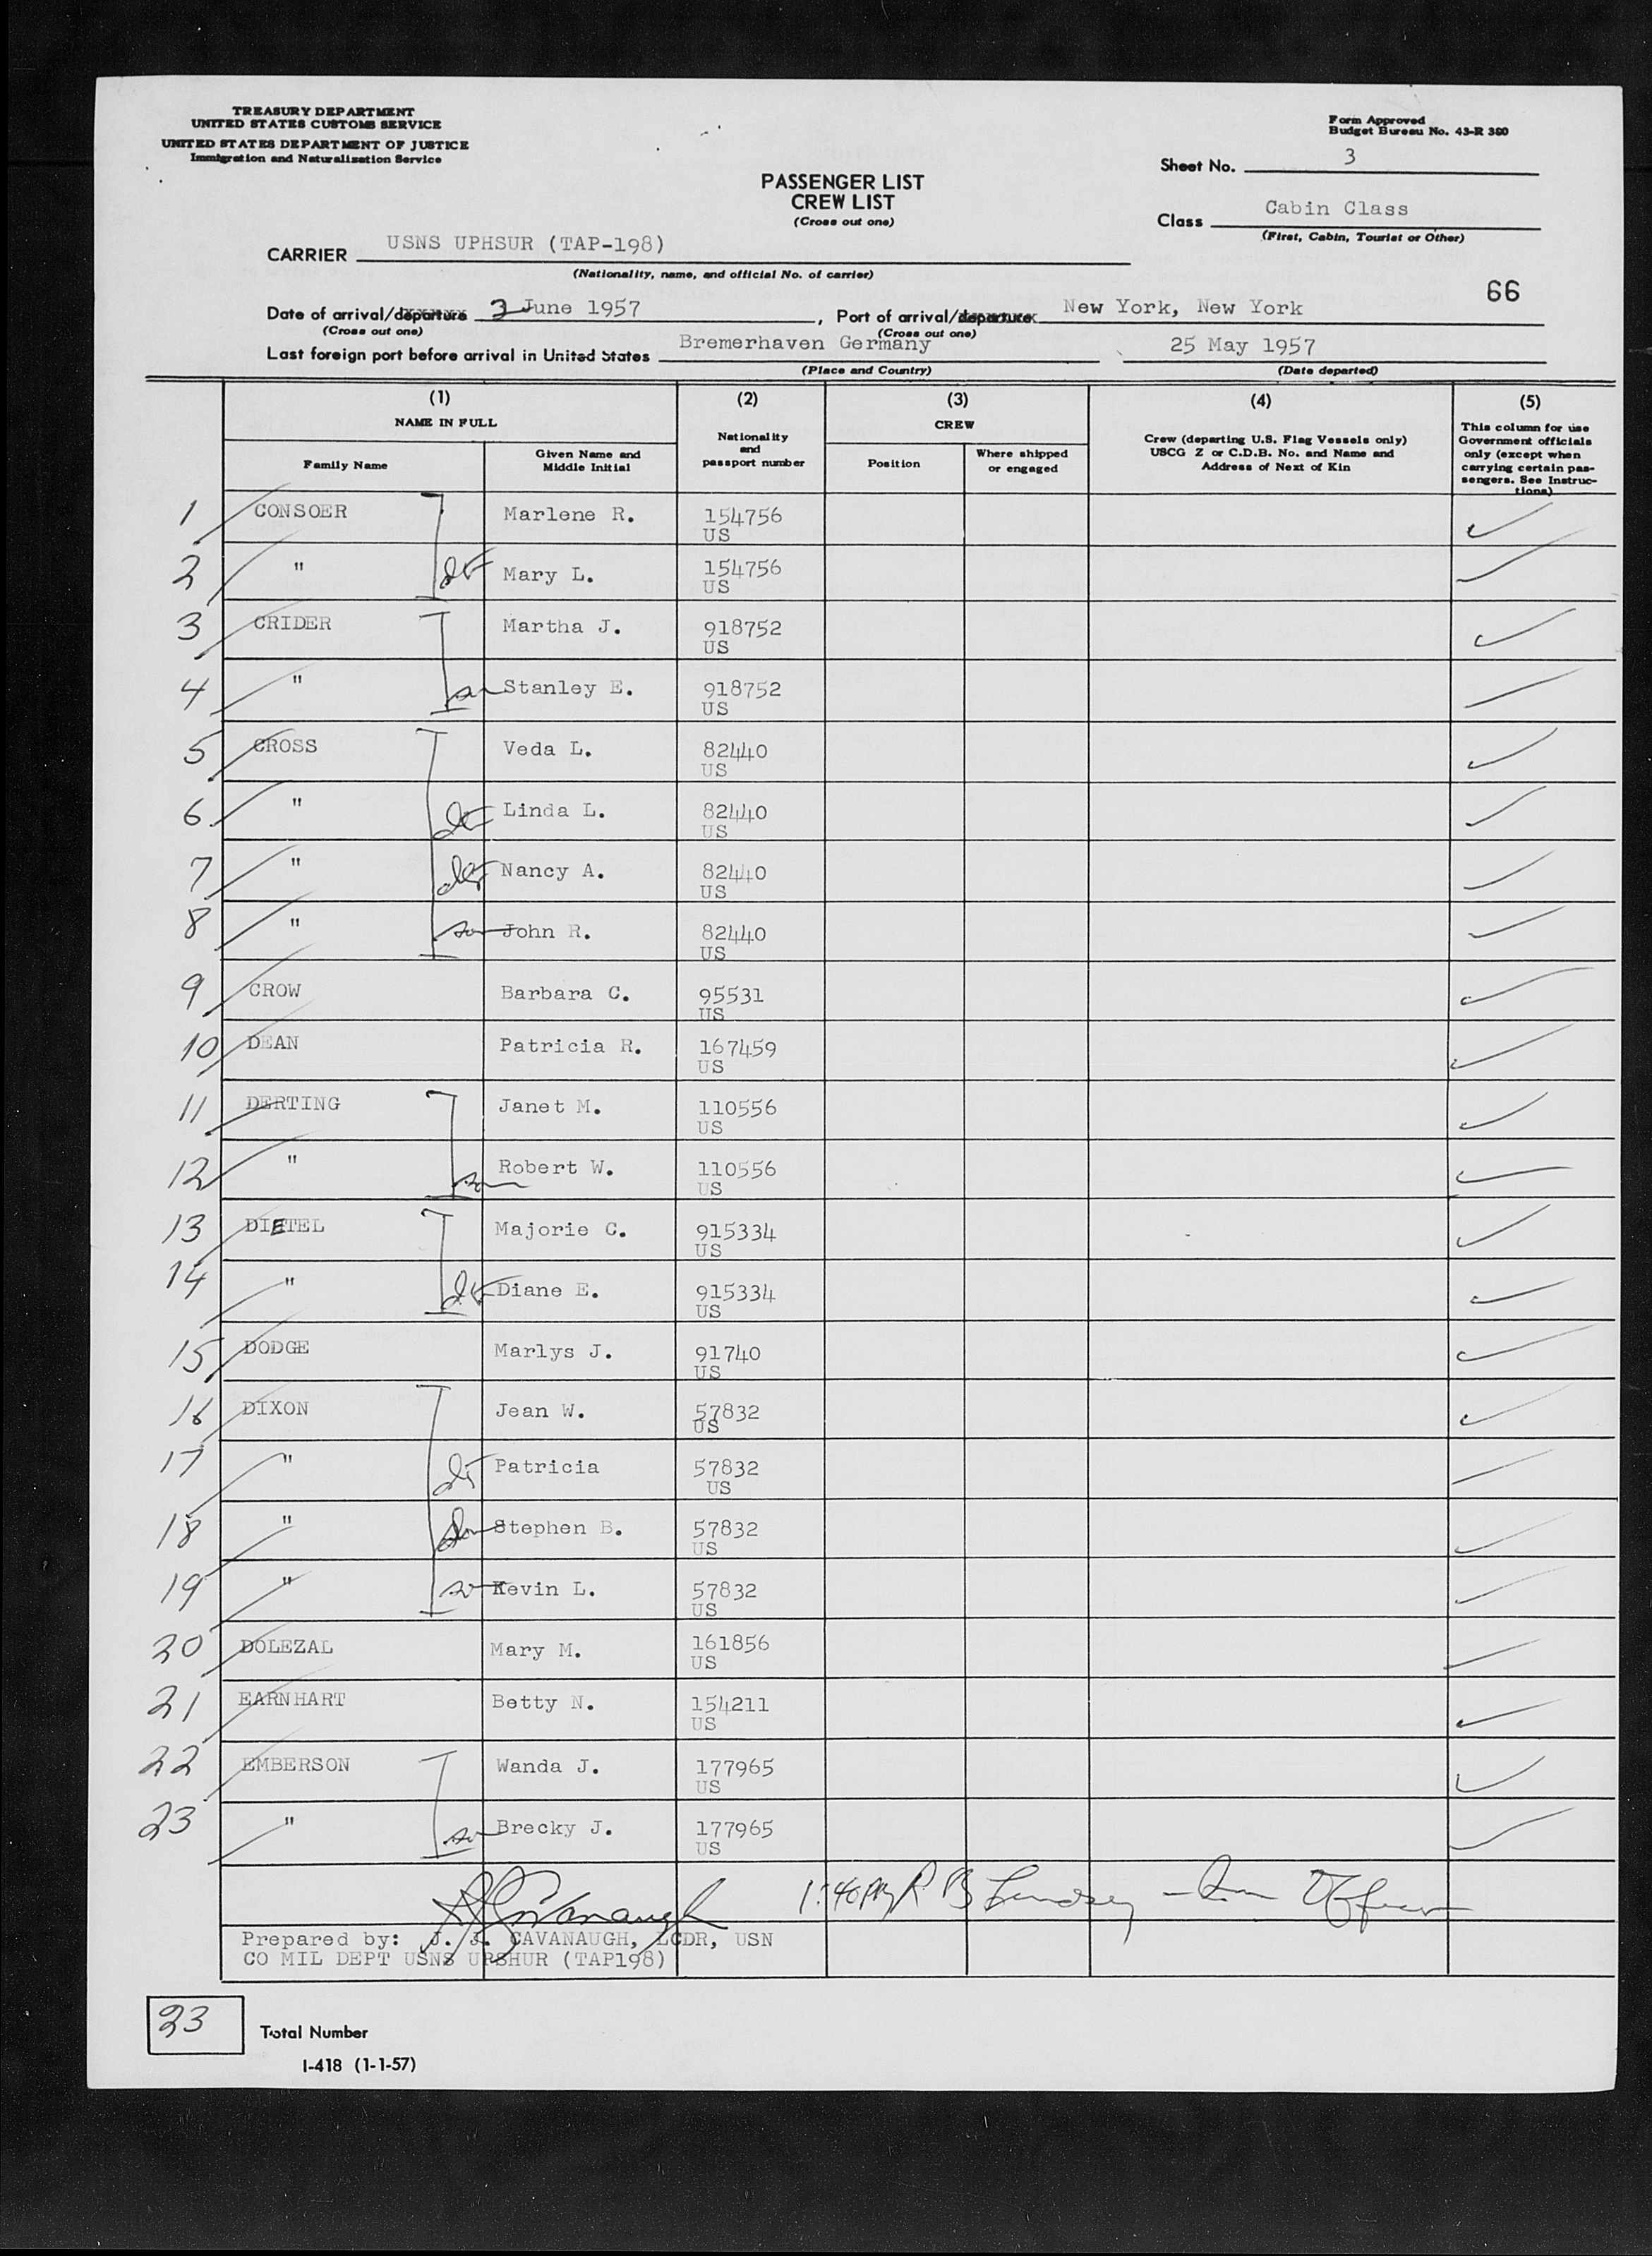 TREASURY DEPARTMENT
UNITED STATES CUSTOMS SERVICE
UNITED STATES DEPARTMENT OF JUSTICE
Immigration and Naturalization Service
Form Approved
Budget Bureau No. 43-R 380
Sheet No. 3
PASSENGER LIST
CREW LIST
(Cross out one)
Class Cabin Class
(First, Cabin, Tourist or Other)
CARRIER USNS UPHSUR (TAP-198)
(Nationality, name, and official No. of carrier)
66
Date of arrival/departure 3 June 1957, Port of arrival/departure New York, New York
(Cross out one) (Cross out one)
Last foreign port before arrival in United States Bremerhaven Germany 25 May 1957
(Place and Country) (Date departed)
(1) (2) (3) (4) (5)
NAME IN FULL
Family Name
Given Name and Middle Initial
Nationality and passport number
CREW
Position
Where shipped or engaged
Crew (departing U.S. Flag Vessels only)
USCG Z or C.D.B. No. and Name and
Address of Next of Kin
This column for use
Government officials
only (except when
carrying certain pas-
sengers. See Instruc-
tions)
1 CONSOER Marlene R. 154756 US
2 " dt Mary L. 154756 US
3 CRIDER Martha J. 918752 US
4 " son Stanley E. 918752 US
5 CROSS Veda L. 82440 US
6 " dt Linda L. 82440 US
7 " dt Nancy A. 82440 US
8 " son John R. 82440 US
9 CROW Barbara C. 95531 US
10 DEAN Patricia R. 167459 US
11 DERTING Janet M. 110556 US
12 " son Robert W. 110556 US
13 DIETEL Majorie C. 915334 US
14 " dt Diane E. 915334 US
15 DODGE Marlys J. 91740 US
16 DIXON Jean W. 57832 US
17 " dt Patricia 57832 US
18 " son Stephen B. 57832 US
19 " son Kevin L. 57832 US
20 DOLEZAL Mary M. 161856 US
21 EARNHART Betty N. 154211 US
22 EMBERSON Wanda J. 177965 US
23 " son Brecky J. 177965 US
J J Cavanaugh 1:40 PM R B Lindsey - Imm Officer
Prepared by: J. J. CAVANAUGH, LCDR, USN
CO MIL DEPT USNS UPSHUR (TAP198)
23 Total Number
I-418 (1-1-57)